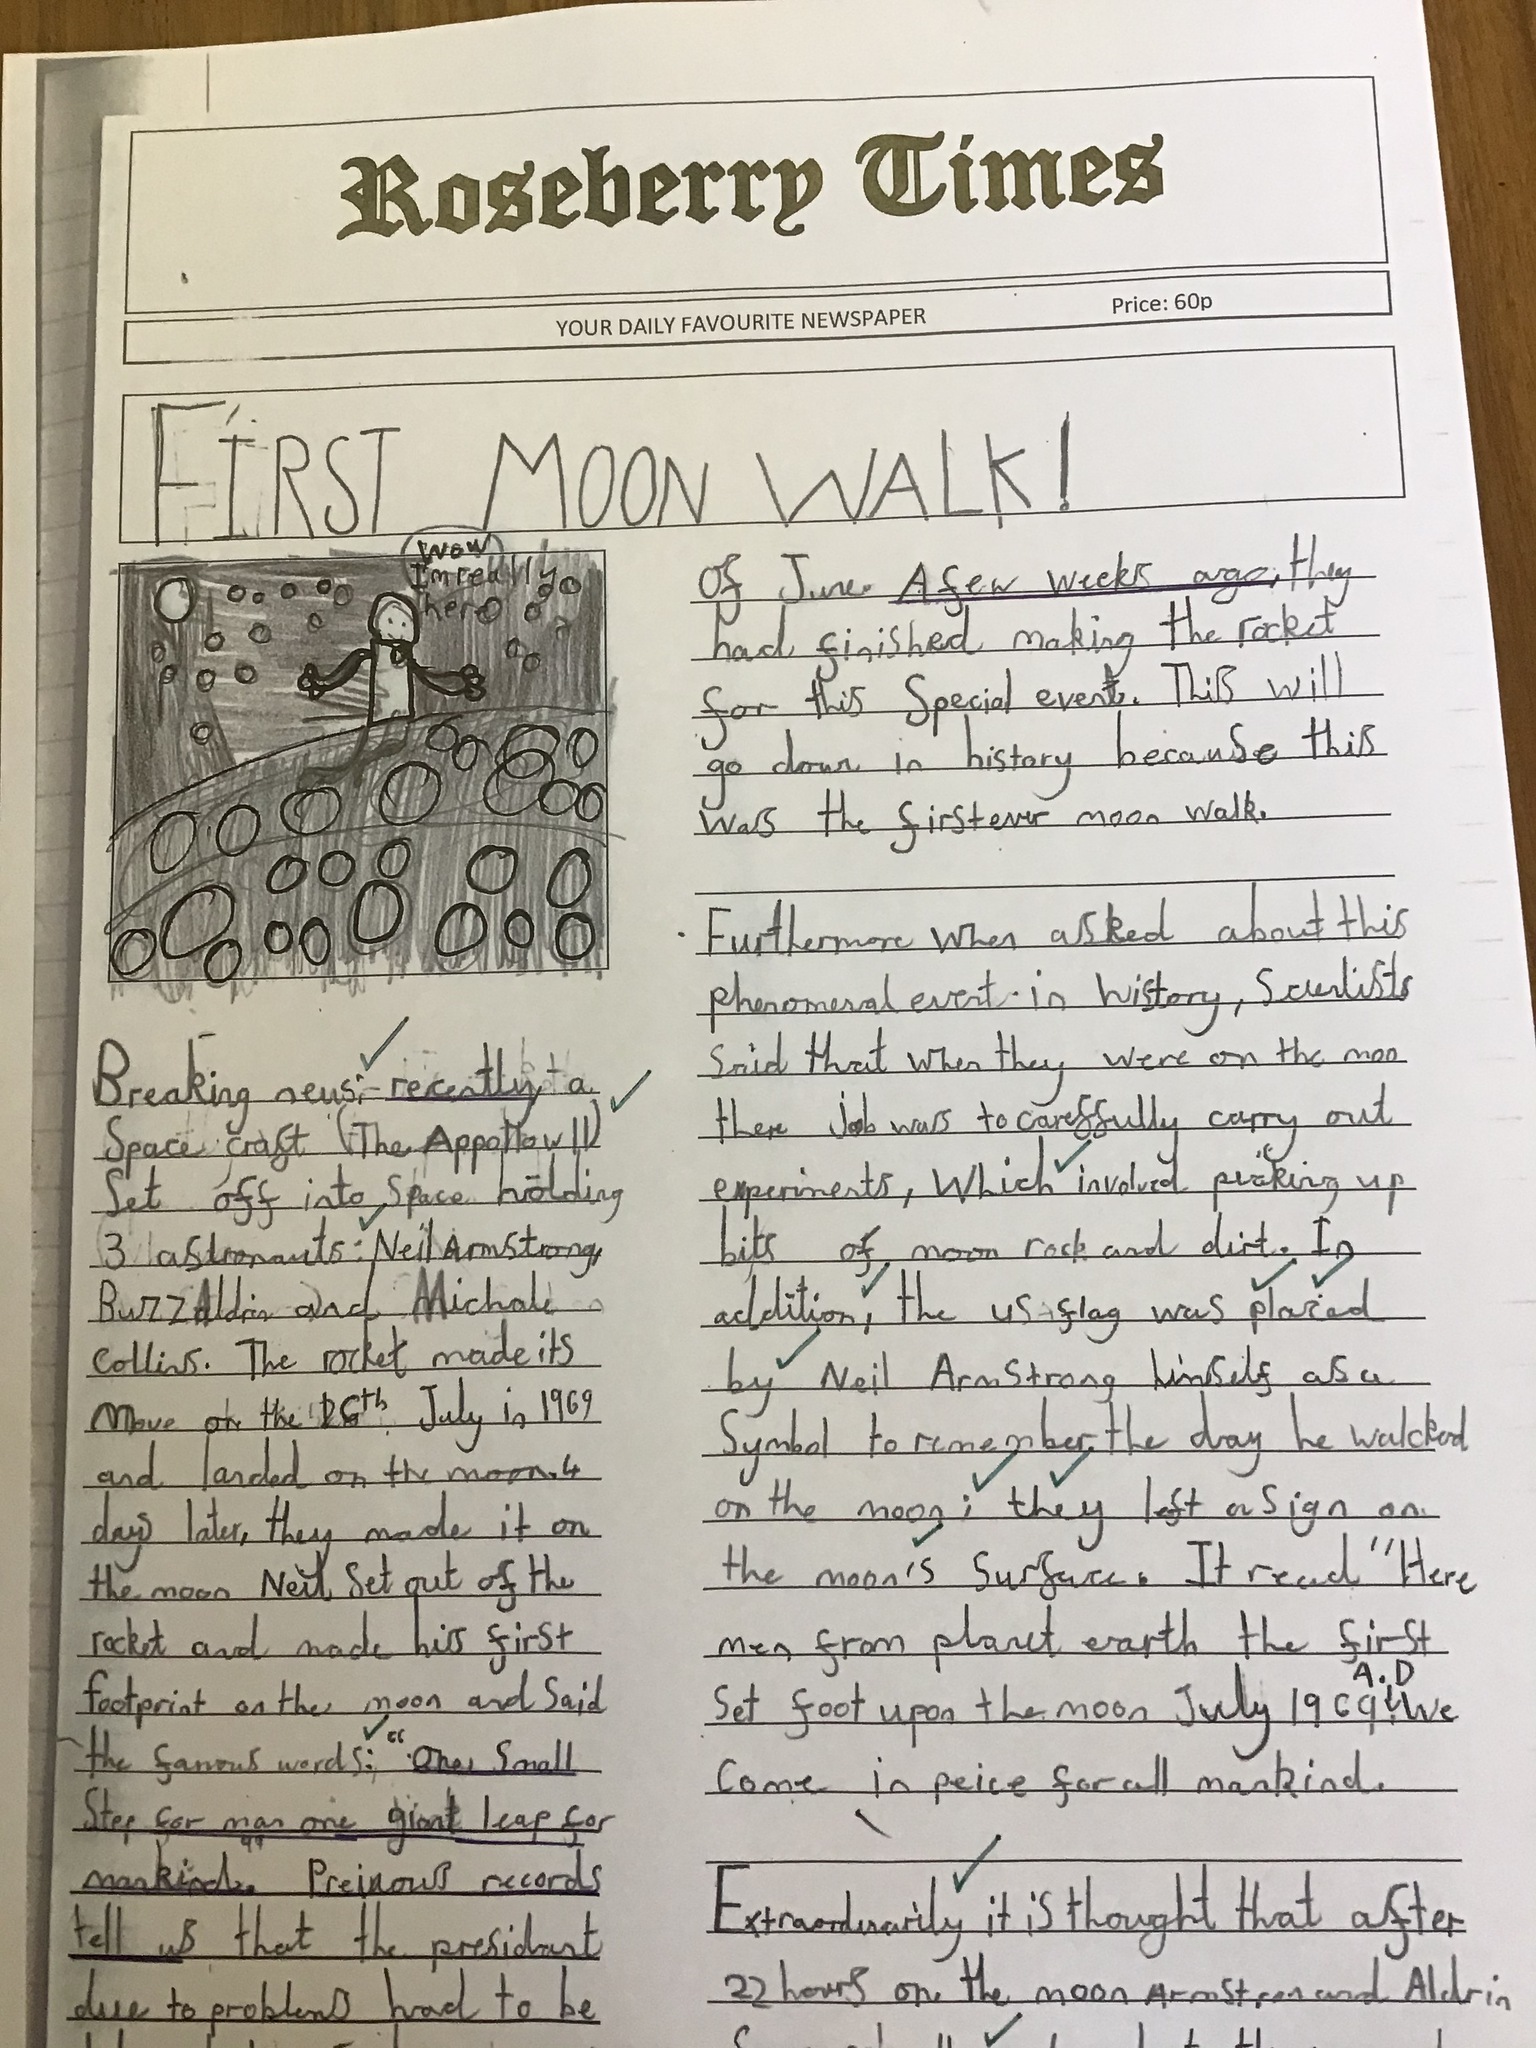 Roseberry Times
YOUR DAILY FAVOURITE NEWSPAPER
Price: 60p
FIRST MOON WALK!
Wow
Im really
here
Breaking news:- recently, a
Space craft (The Appollow 11)
Set off into Space holding
3 astronauts: Neil Armstrong,
Buzz Aldrin and Michale
Collins. The rocket made its
Move on the 16th July in 1969
and landed on the moon. 4
days later, they made it on
the moon Neil Set out of the
rocket and made his first
footprint on the moon and Said
the famous words: "One Small
Step for man one giant leap for
mankind." Preivous records
tell us that the presidant
due to problems had to be
of June. A few weeks ago, they
had finished making the rocket
for this Special event. This will
go down in history because this
was the first ever moon walk.
Furthermore when asked about this
phenomenal event in history, Scientists
Said that when they were on the moo
there job was to carefully carry out
experiments, Which involved picking up
bits of moon rock and dirt. In
addition, the us flag was placed
by Neil Armstrong himself as a
Symbol to remember the day he walcked
on the moon; they left a Sign on
the moon's Surface. It read "Here
men from planet earth the first
A.D
Set foot upon the moon July 1969! We
Come in peice for all mankind.
Extraordinarily it is thought that after
22 hours on the moon Armstron and Aldrin